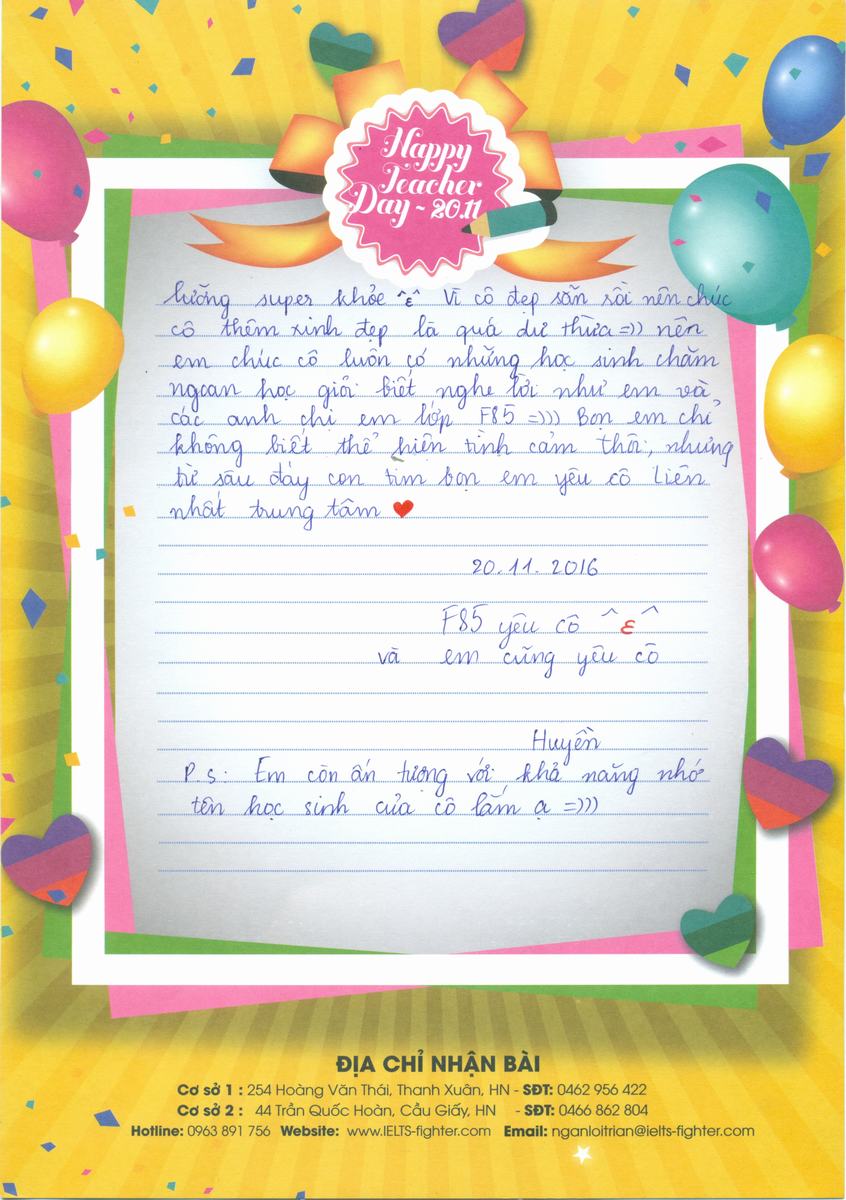 Happy
Teacher
Day ~ 20.11
lường super khỏe ^ε^ Vì cô đẹp sẵn rồi nên chúc
cô thêm xinh đẹp là quá dư thừa =)) nên
em chúc cô luôn có những học sinh chăm
ngoan học giỏi biết nghe lời như em và
các anh chị em lớp F85 =))) Bọn em chỉ
không biết thể hiện tình cảm thôi, nhưng
từ sâu đáy con tim bọn em yêu cô Liên
nhất trung tâm ❤
20.11.2016
F85 yêu cô ^ε^
và em cũng yêu cô
Huyền
P.s: Em còn ấn tượng với khả năng nhớ
tên học sinh của cô lắm ạ =)))
ĐỊA CHỈ NHẬN BÀI
Cơ sở 1 : 254 Hoàng Văn Thái, Thanh Xuân, HN - SĐT: 0462 956 422
Cơ sở 2 : 44 Trần Quốc Hoàn, Cầu Giấy, HN - SĐT: 0466 862 804
Hotline: 0963 891 756 Website: www.IELTS-fighter.com Email: nganloitrian@ielts-fighter.com